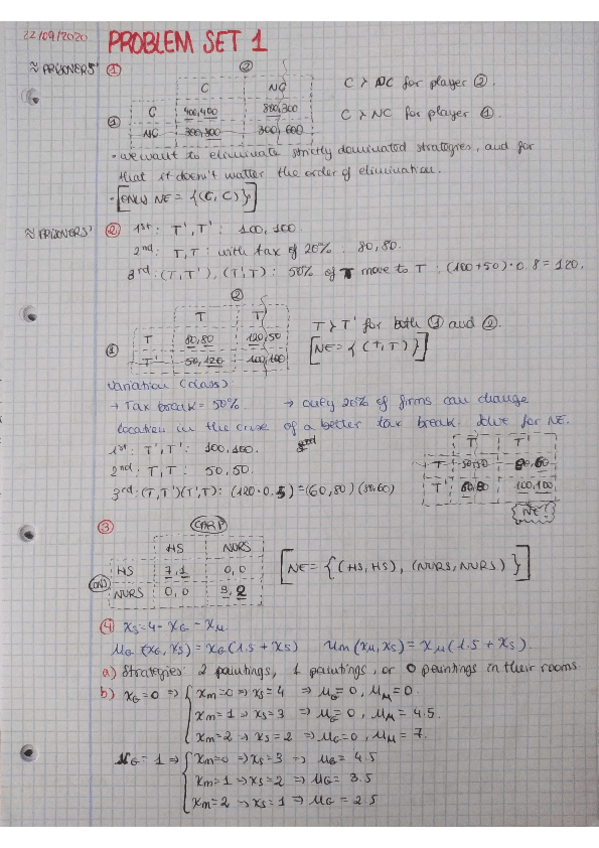 22/09/2020 PROBLEM SET 1
≈ PRISONERS' ① ②
C NC
C 400,400 800,300
① NC 300,800 600,600
C ≻ NC for player ②.
C ≻ NC for player ①.
· we want to eliminate strictly dominated strategies, and for
that it doesn't matter the order of elimination.
· [ONLY NE = {(C, C)}]
≈ PRISONERS' ② 1st: T', T' : 100, 100.
2nd: T, T : with tax of 20% . 80, 80.
3rd: (T, T'), (T', T) : 50% of T move to T : (100+50)·0.8 = 120.
②
T T'
① T 80,80 120,50
T' 50,120 100,100
T ≻ T' for both ① and ②.
[NE = {(T, T)}]
Variation (class)
→ Tax break = 50% → only 20% of firms can change
location in the case of a better tax break. Solve for NE.
1st: T', T' : 100, 100.
2nd: T, T : 50, 50.
3rd: (T, T') (T', T) : (120·0.5) = (60, 80) (80,60)
T T'
T 50,50 60,80
T' 80,60 100,100
NE!
③ CARP
HS NURS
HS 7,1 0,0
NURS 0,0 9,2
[NE = {(HS, HS), (NURS, NURS)}]
④ xS = 4 - xG - xM
uG (xG, xS) = xG (1.5 + xS) um (xM, xS) = xM (1.5 + xS).
a) Strategies: 2 paintings, 1 paintings, or 0 paintings in their rooms.
b) xG = 0 ⇒ { xm = 0 ⇒ xS = 4 ⇒ uG = 0, uM = 0.
xm = 1 ⇒ xS = 3 ⇒ uG = 0, uM = 4.5.
xm = 2 ⇒ xS = 2 ⇒ uG = 0, uM = 7.
xG = 1 ⇒ { xm = 0 ⇒ xS = 3 ⇒ uG = 4.5
xm = 1 ⇒ xS = 2 ⇒ uG = 3.5
xm = 2 ⇒ xS = 1 ⇒ uG = 2.5